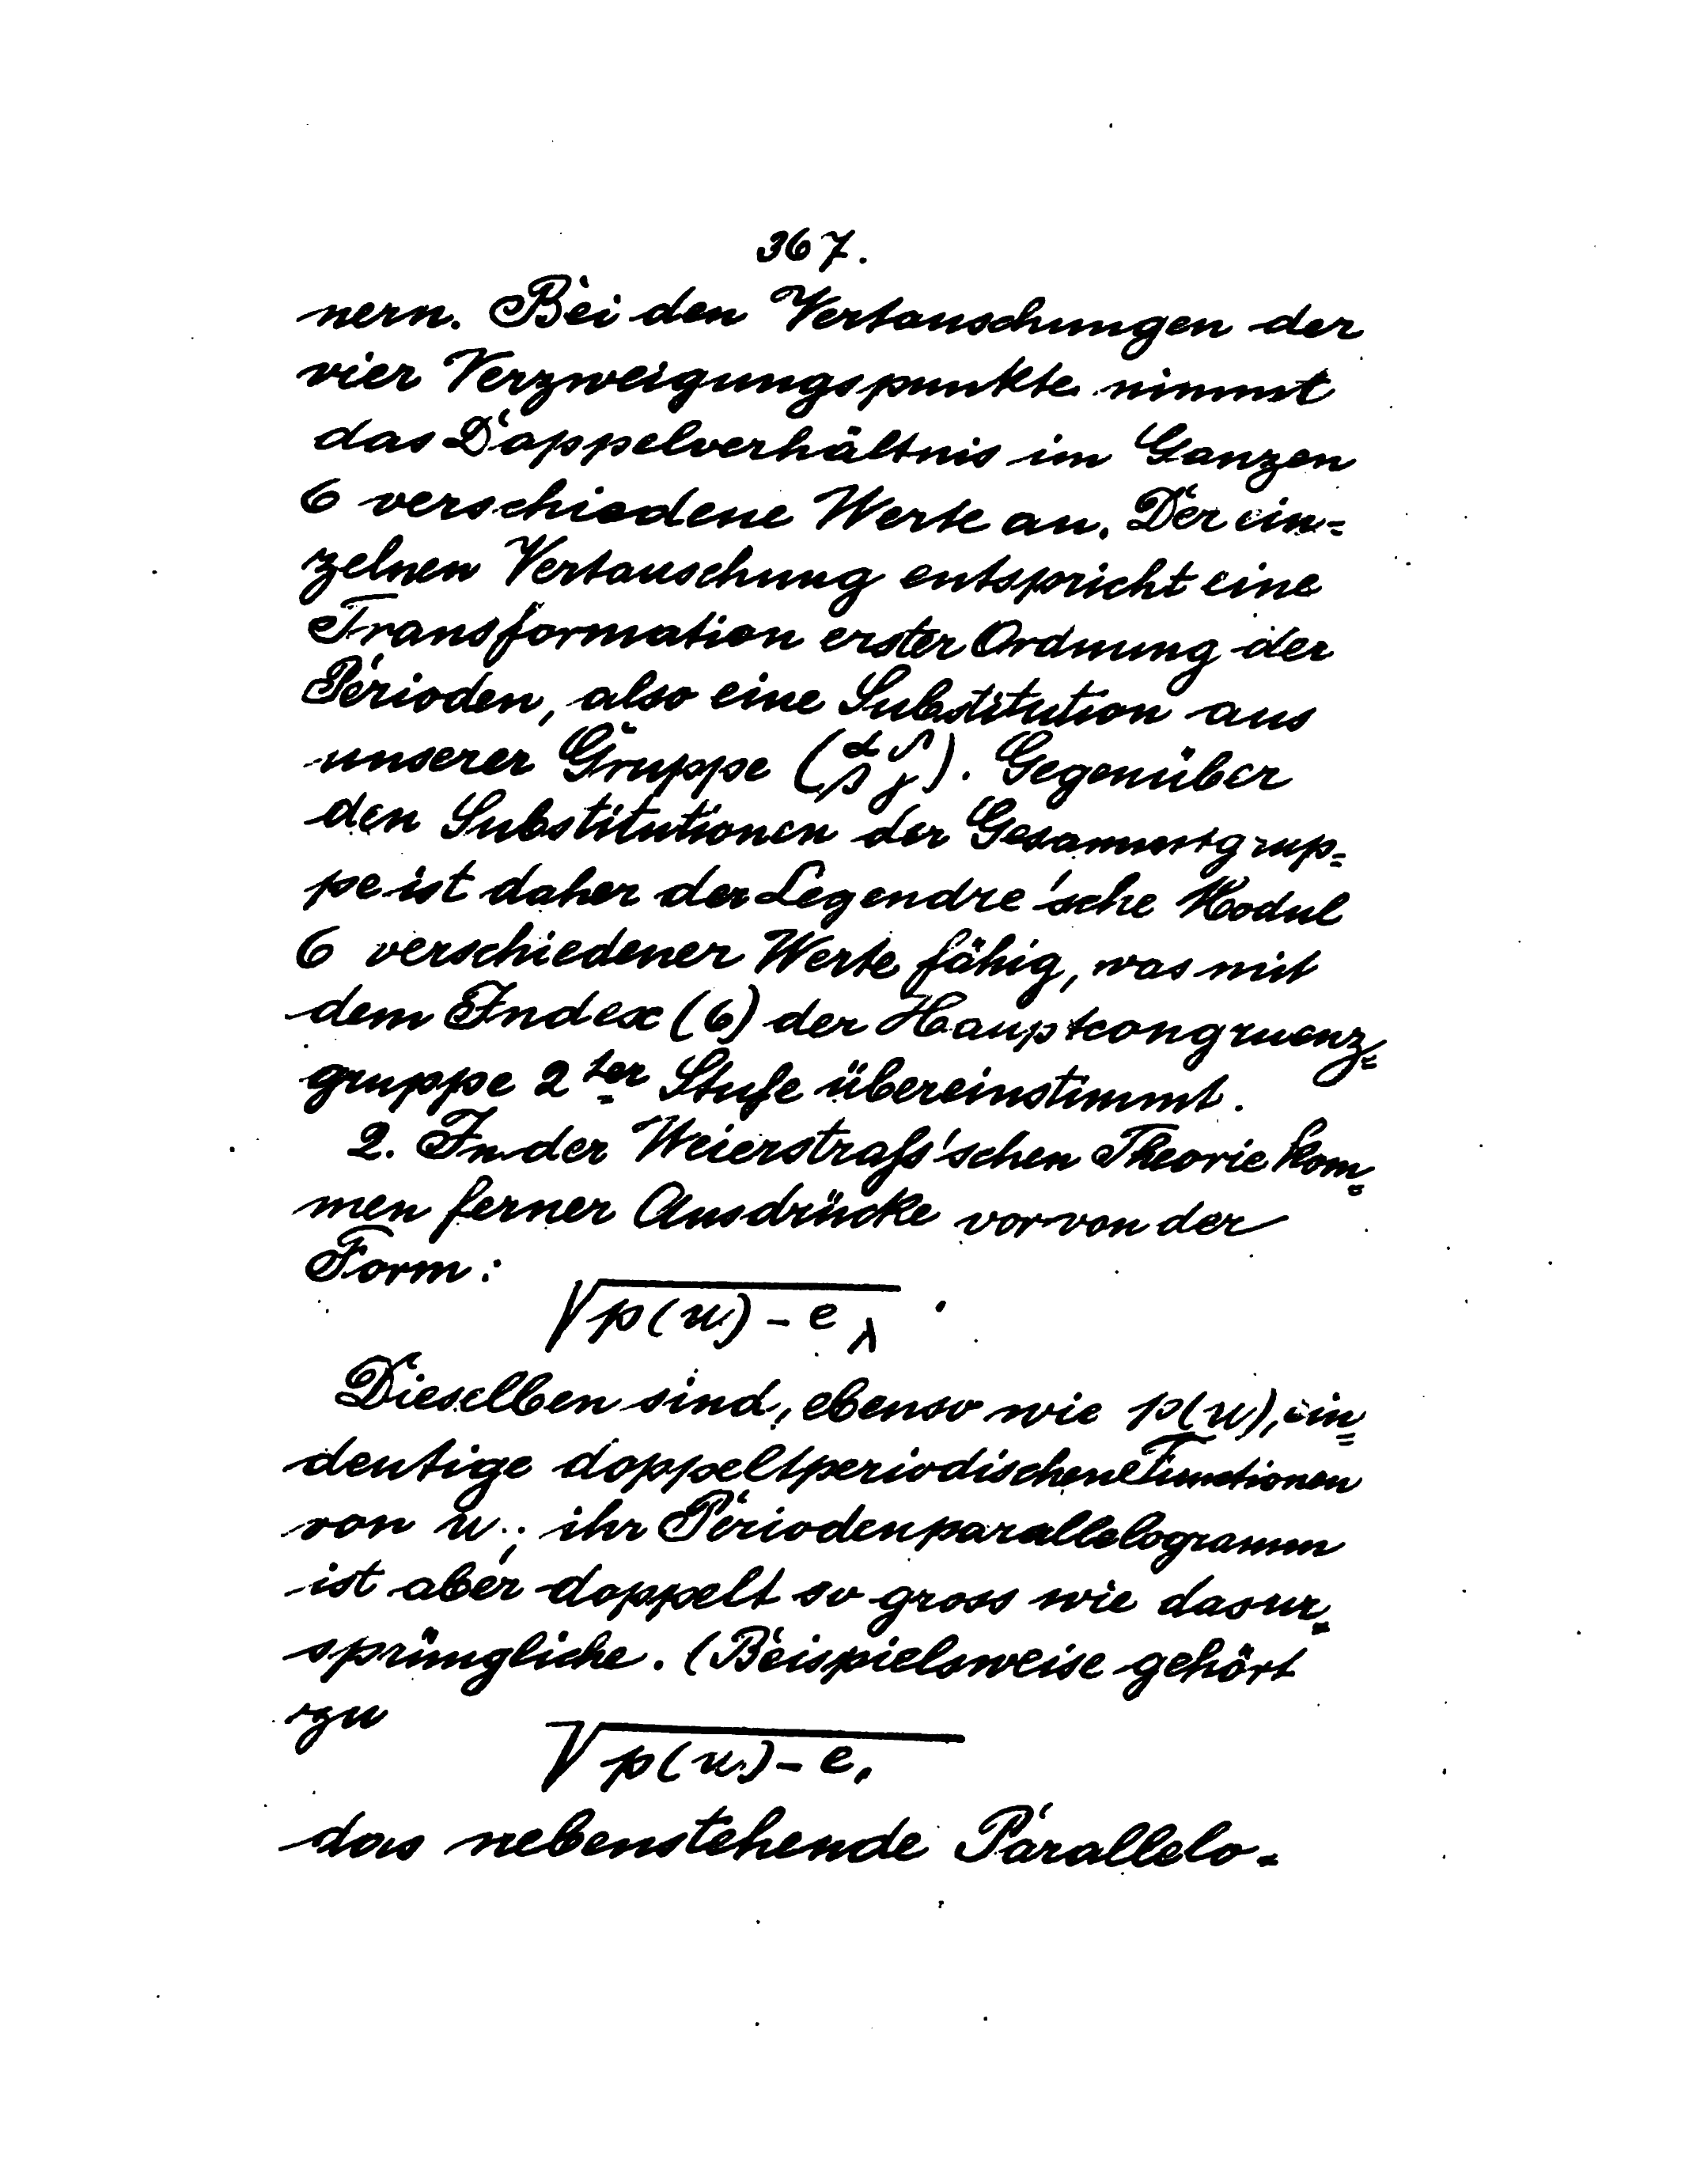 367.
nern. Bei den Vertauschungen der
vier Verzweigungspunkte nimmt
das Doppelverhältnis im Ganzen
6 verschiedene Werte an. Der ein=
zelnen Vertauschung entspricht eine
Transformation erster Ordnung der
Perioden, also eine Substitution aus
unserer Gruppe (α δ
β γ). Gegenüber
den Substitutionen der Gesammtgrup=
pe ist daher der Legendre'sche Modul
6 verschiedener Werte fähig, was mit
dem Index (6) der Hauptcongruenz=
gruppe 2ter Stufe übereinstimmt.
2. In der Weierstraſs'schen Theorie kom=
men ferner Ausdrücke vor von der
Form:
√p(u) - e_λ .
Dieselben sind, ebenso wie p(u), ein=
deutige doppeltperiodischene Functionen
von u; ihr Periodenparallelogramm
ist aber doppelt so gross wie das ur=
sprüngliche. (Beispielsweise gehört
zu
√p(u) - e₁
das nebenstehende Parallelo=